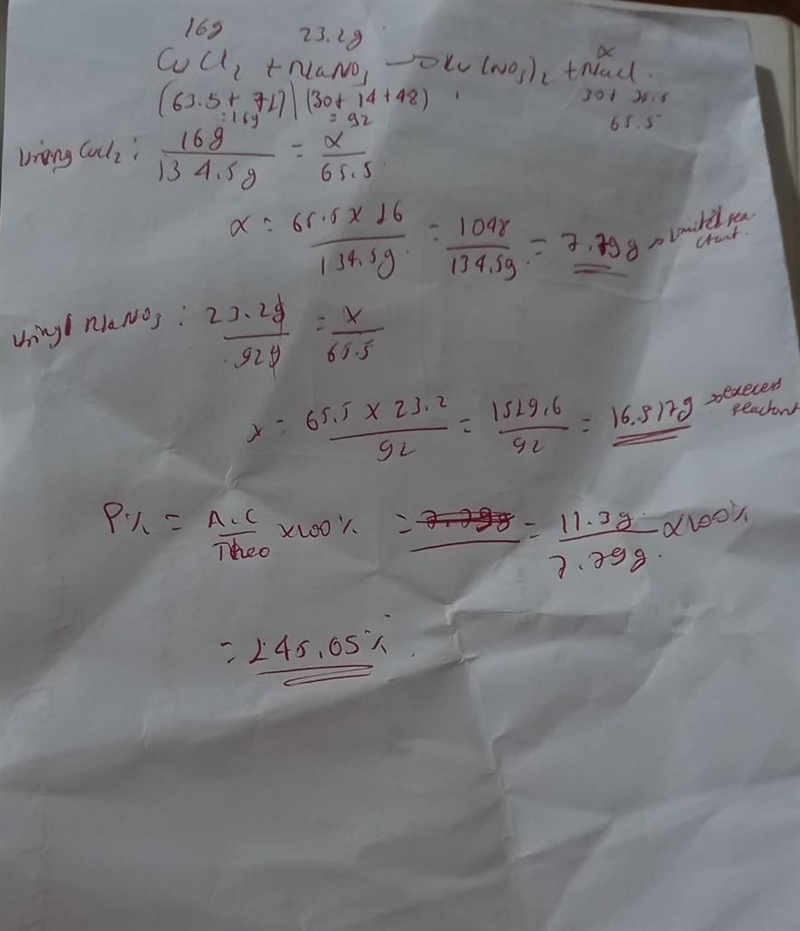 16g 23.2g x
CuCl2 + NaNO3 → Cu(NO3)2 + NaCl.
(63.5 + 71) | (30 + 14 + 48) 30 + 35.5
= 16g = 92 65.5
Using CuCl2 : 16g / 134.5g = x / 65.5
x = 65.5 x 16 / 134.5g = 1048 / 134.5g = 7.79g → Limited reactant.
Using NaNO3 : 23.2g / 92g = x / 65.5
x = 65.5 x 23.2 / 92 = 1519.6 / 92 = 16.517g → excess reactant
P% = A.C / Theo x100% = 7.79g = 11.3g. / 7.79g. x100%
= 145.05%.